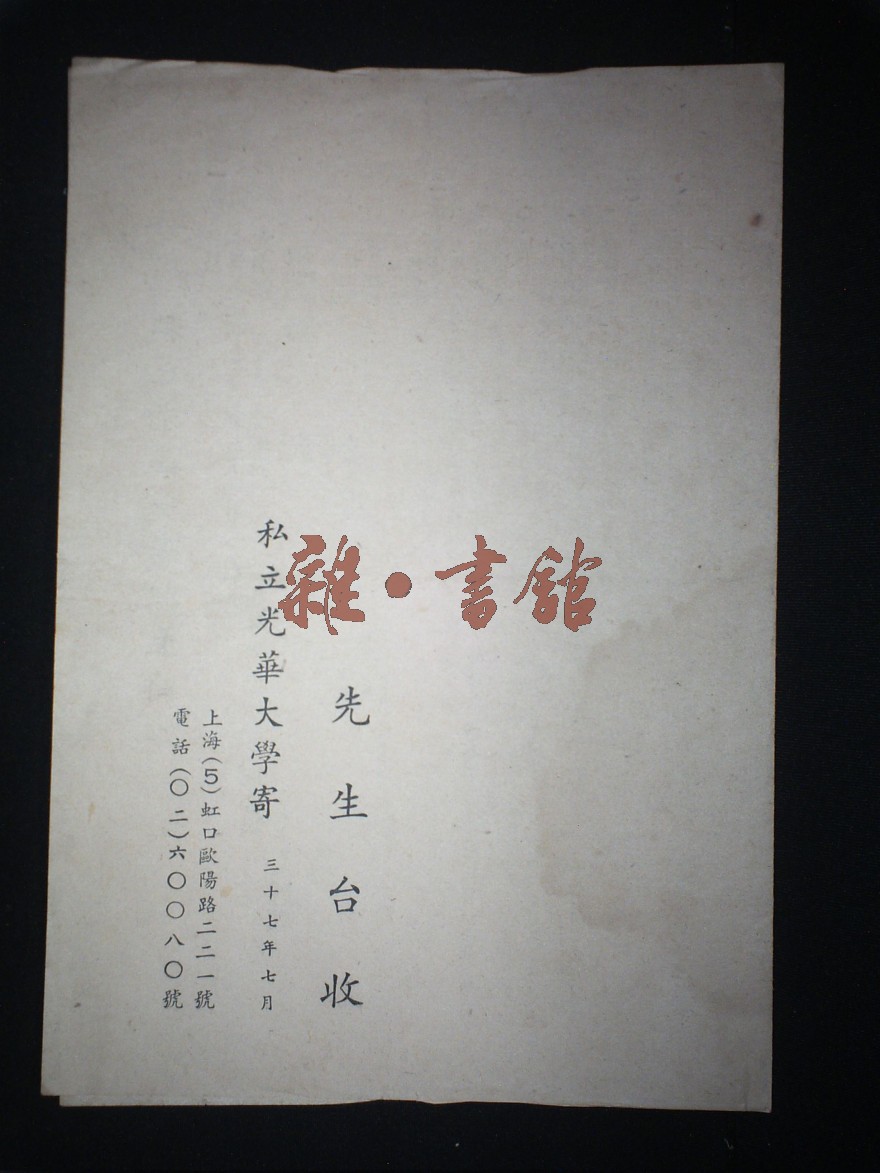 雜·書館
先生台收
私立光華大學寄 三十七年七月
上海(5)虹口歐陽路二二一號
電話(〇二)六〇〇八〇號